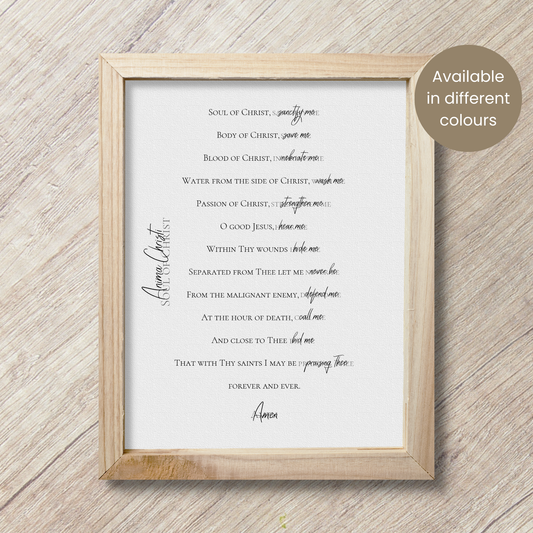 Available
in different
colours
Soul of Christ, sanctify me
Body of Christ, save me
Blood of Christ, inebriate me
Water from the side of Christ, wash me
Passion of Christ, strengthen me
O good Jesus, hear me
Within Thy wounds hide me
Separated from Thee let me never be
From the malignant enemy, defend me
At the hour of death, call me
And close to Thee bid me
That with Thy saints I may be praising Thee
forever and ever.
Amen
Anima Christi
Soul of Christ